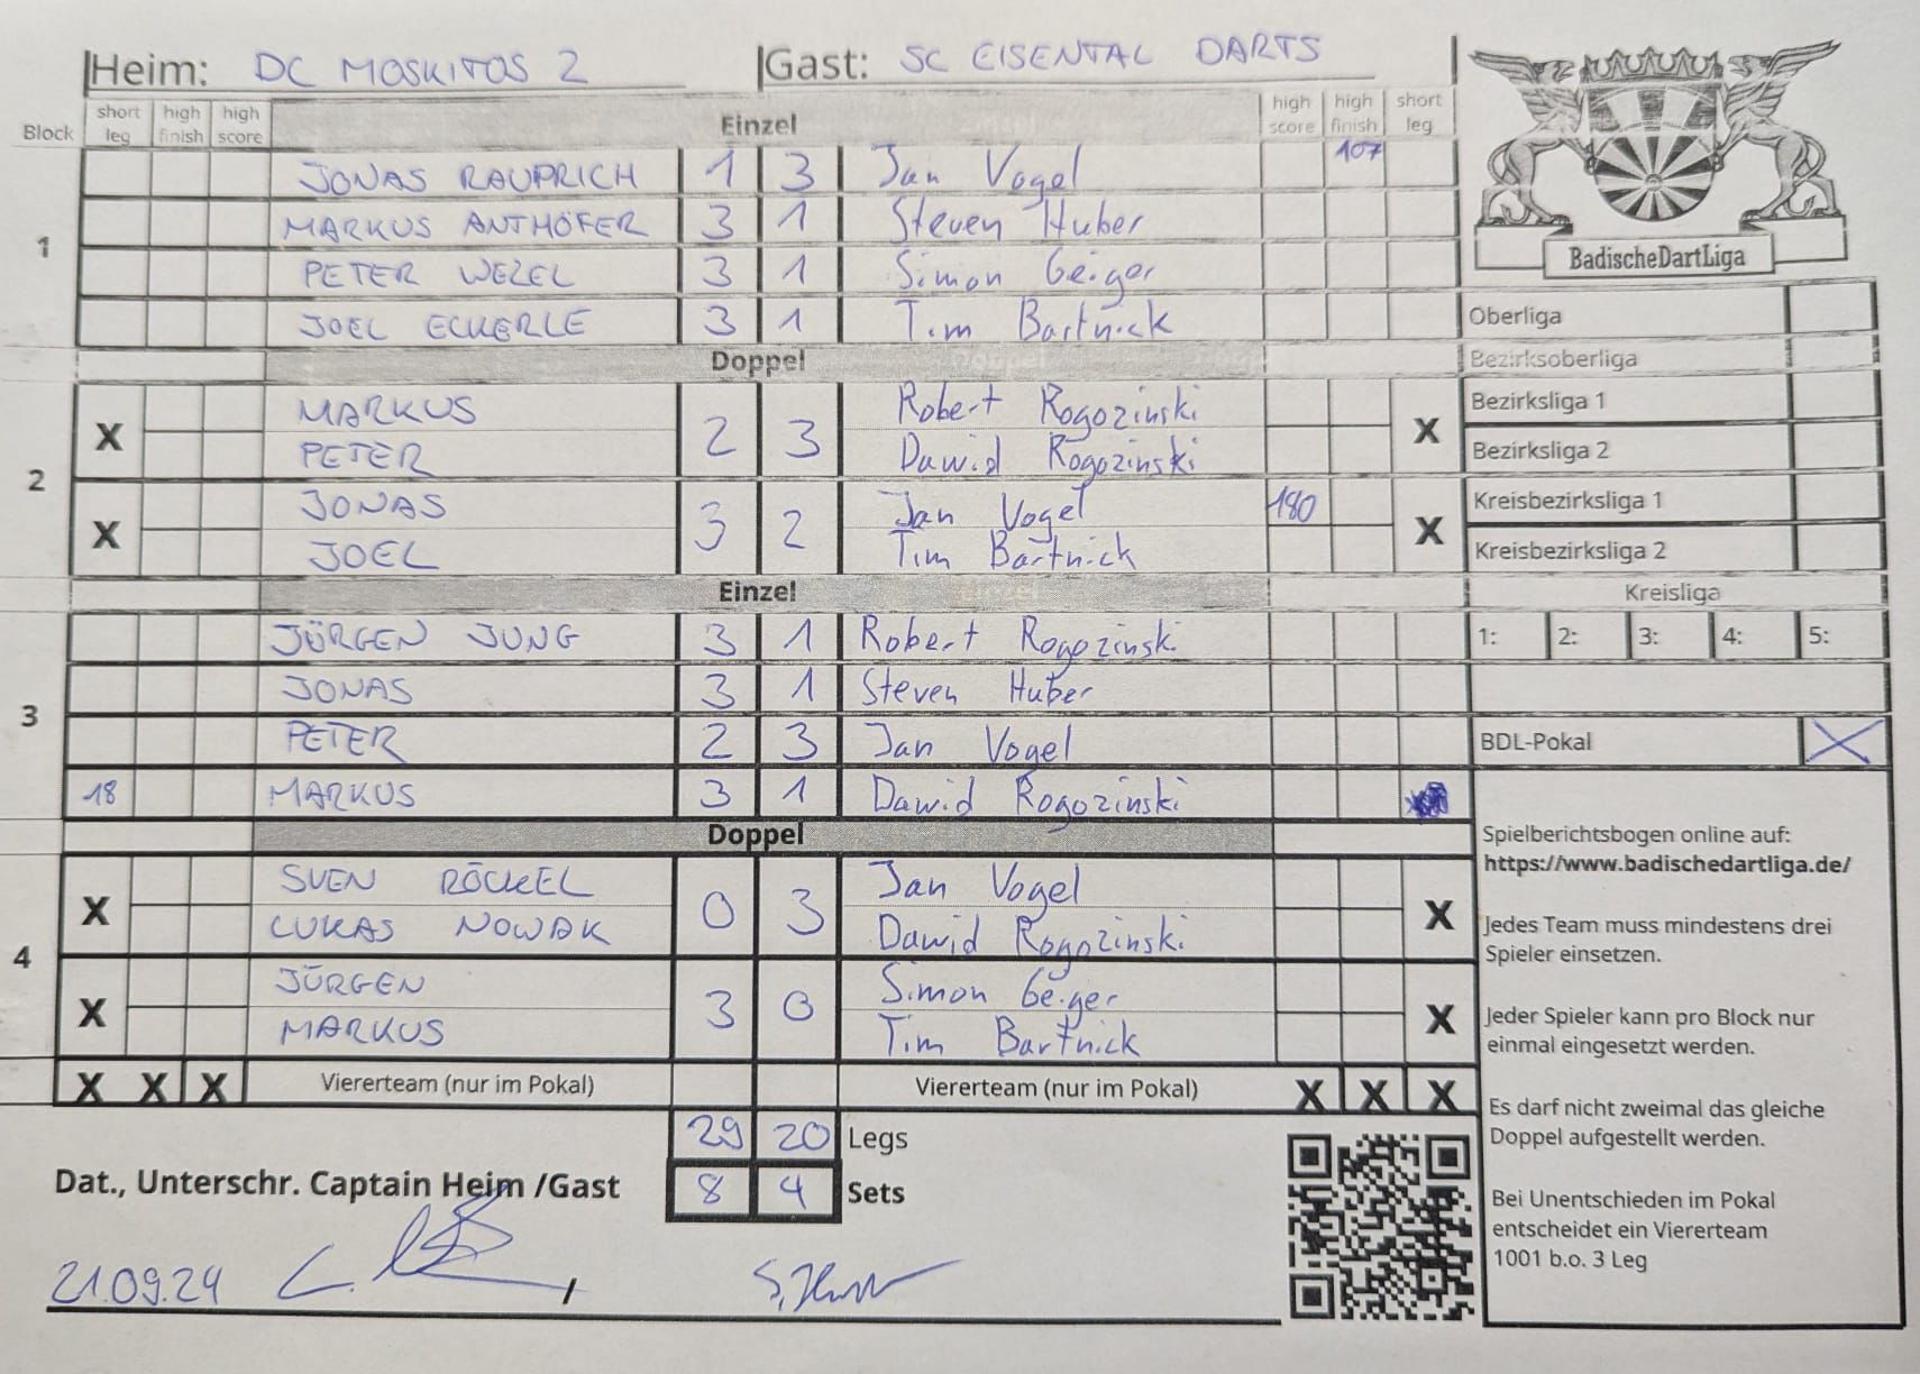 Heim: DC MOSKITOS 2 Gast: SC EISENTAL DARTS
Block short leg high finish high score Einzel high score high finish short leg
1
JONAS RAUPRICH 1 3 Jan Vogel 107
MARKUS ANTHÖFER 3 1 Steven Huber
PETER WEZEL 3 1 Simon Geiger
JOEL ECKERLE 3 1 Tim Bartnick
Doppel
2
X MARKUS 2 3 Robert Rogozinski X
PETER Dawid Rogozinski
X JONAS 3 2 Jan Vogel 180 X
JOEL Tim Bartnick
Einzel
3
JÜRGEN JUNG 3 1 Robert Rogozinski
JONAS 3 1 Steven Huber
PETER 2 3 Jan Vogel
18 MARKUS 3 1 Dawid Rogozinski
Doppel
4
X SVEN RÖCKEL 0 3 Jan Vogel X
LUKAS NOWAK Dawid Rogozinski
X JÜRGEN 3 0 Simon Geiger X
MARKUS Tim Bartnick
X X X Viererteam (nur im Pokal) Viererteam (nur im Pokal) X X X
29 20 Legs
Dat., Unterschr. Captain Heim /Gast 8 4 Sets
21.09.24
BadischeDartLiga
Oberliga
Bezirksoberliga
Bezirksliga 1
Bezirksliga 2
Kreisbezirksliga 1
Kreisbezirksliga 2
Kreisliga
1: 2: 3: 4: 5:
BDL-Pokal X
Spielberichtsbogen online auf:
https://www.badischedartliga.de/
Jedes Team muss mindestens drei
Spieler einsetzen.
Jeder Spieler kann pro Block nur
einmal eingesetzt werden.
Es darf nicht zweimal das gleiche
Doppel aufgestellt werden.
Bei Unentschieden im Pokal
entscheidet ein Viererteam
1001 b.o. 3 Leg